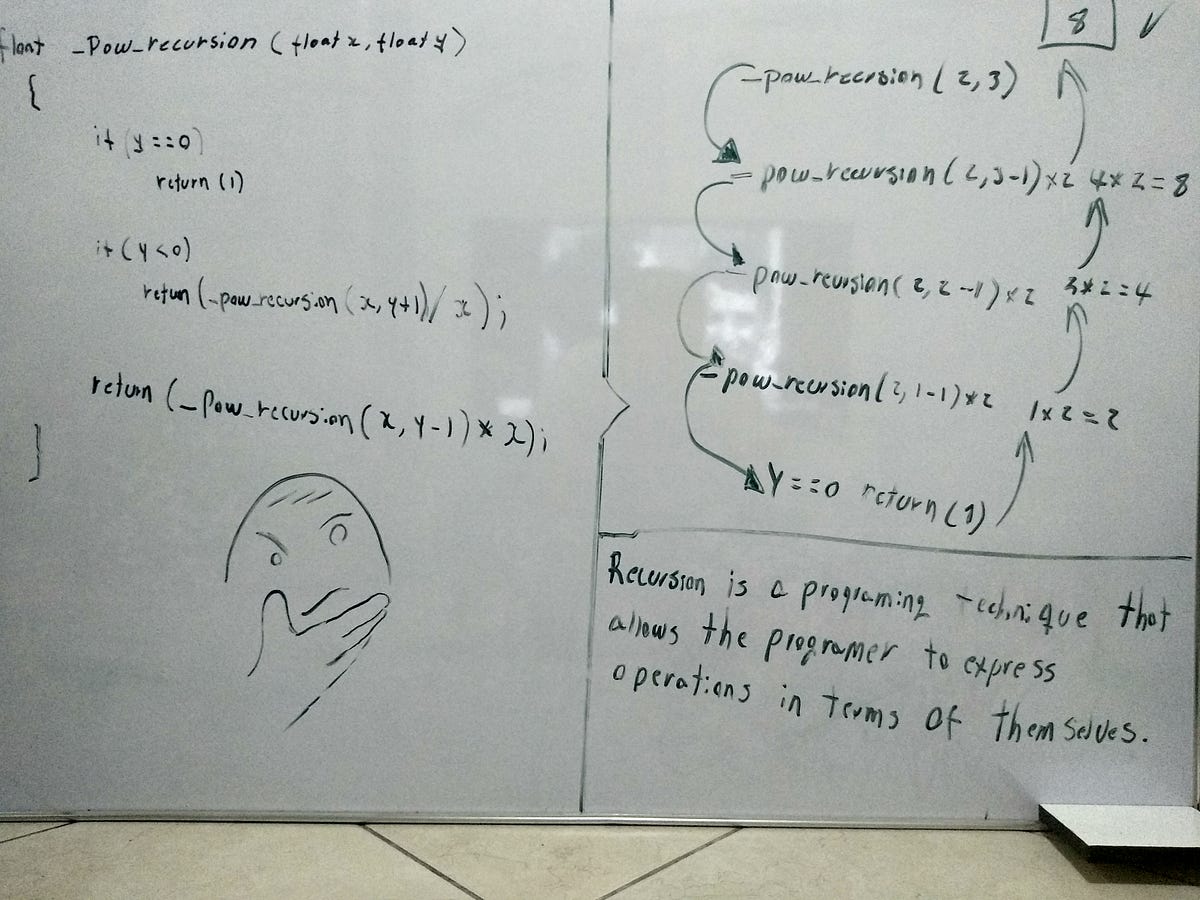 float _Pow_recursion (float x, float y)
{
if (y ==0)
return (1)
if (y <0)
return (_pow_recursion (x, y+1) / x );
return (_Pow_recursion (x, y-1) * x);
}
8
_pow_recursion ( 2, 3)
_ pow_recursion ( 2, 3-1) x2 4x 2 = 8
_ pow_recursion ( 2, 2 -1) x 2 2x2 = 4
_ pow_recursion ( 2, 1-1) x2 1x 2 = 2
Y ==0 return (1)
Recursion is a programing technique that
allows the programer to express
operations in terms of themselves.